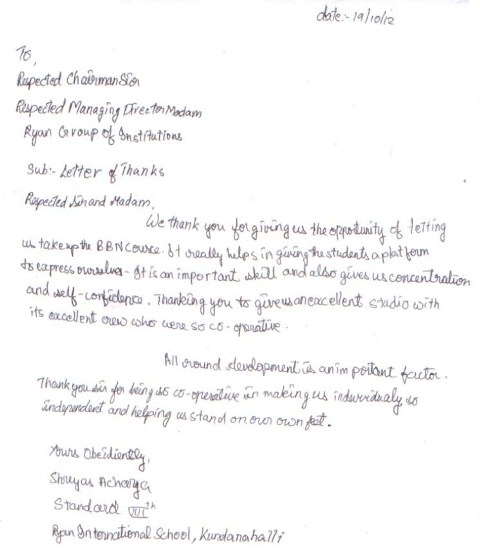 date:- 19/10/12
To,
Respected Chairman Sir
Respected Managing Director Madam
Ryan Group of Institutions
Sub:- Letter of Thanks
Respected Sir and Madam,
We thank you for giving us the opportunity of letting
us take up the BBN Course. It really helps in giving the students a platform
to express ourselves. It is an important skill and also gives us concentration
and self-confidence. Thanking you to give us an excellent studio with
its excellent crew who were so co-operative.
All round development is an important factor.
Thank you sir for being so co-operative in making us indivvidualy so
independent and helping us stand on our own feet.
Yours Obediently,
Shreyas Acharya
Standard VIIth
Ryan International School, Kundanahalli